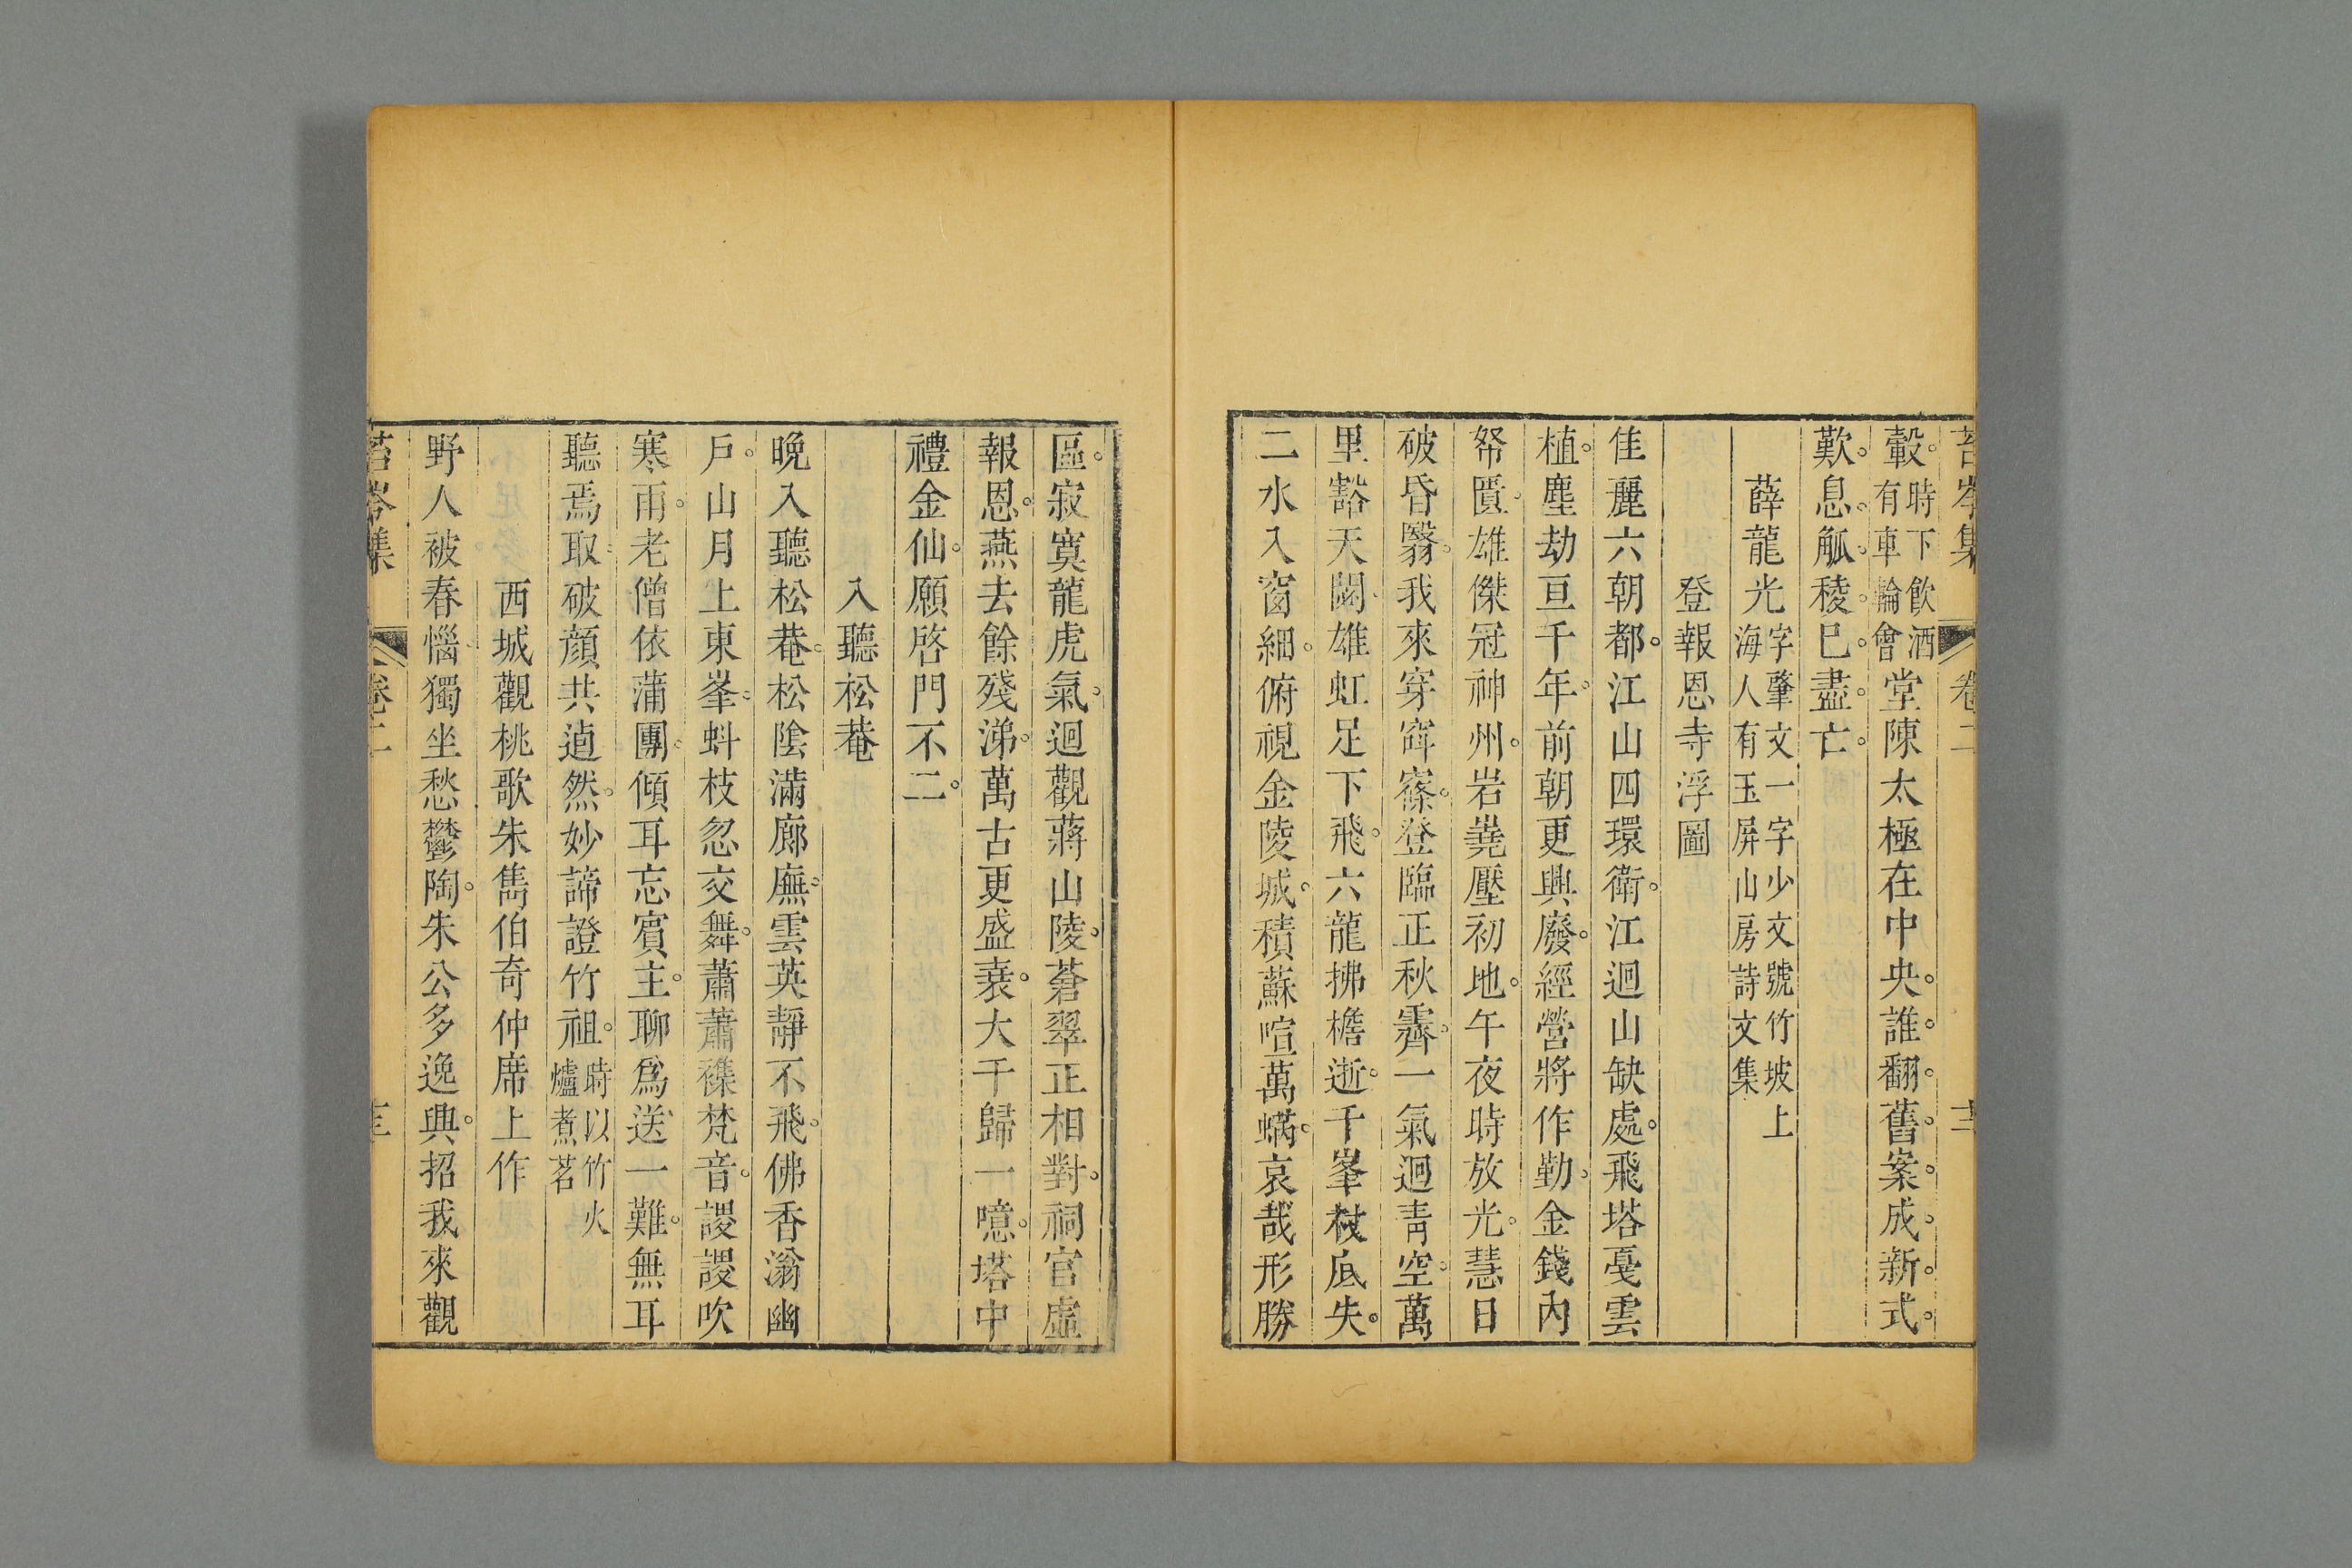 苔岑集 卷二
轂時下飲酒有車輪會堂陳太極在中央誰翻舊案成新式
歎息觚稜已盡亡
薛龍光字肇文一字少文號竹坡上海人有玉屏山房詩文集
登報恩寺浮圖
佳麗六朝都江山四環衛江迴山缺處飛塔戞雲
植塵劫亘千年前朝更興廢經營將作勤金錢內
帑匱雄傑冠神州岩嶤壓初地午夜時放光慧日
破昏翳我來穿窅窱登臨正秋霽一氣迴靑空萬
里豁天闕雄虹足下飛六龍拂檐逝千峯杖底失
二水入窗細俯視金陵城積蘇喧萬螨哀哉形勝
區寂寞龍虎氣迴觀蔣山陵蒼翠正相對祠官虛
報恩燕去餘殘涕萬古更盛衰大千歸一噫塔中
禮金仙願啓門不二
入聽松菴
晚入聽松菴松陰滿廊廡雲英靜不飛佛香滃幽
戶山月上東峯蚪枝忽交舞蕭蕭襍梵音謖謖吹
寒雨老僧依蒲團傾耳忘賓主聊爲送一難無耳
聽焉取破顏共逌然妙諦證竹祖時以竹火爐煮茗
西城觀桃歌朱雋伯奇仲席上作
野人被春惱獨坐愁鬱陶朱公多逸興招我來觀
苔岑集 卷二